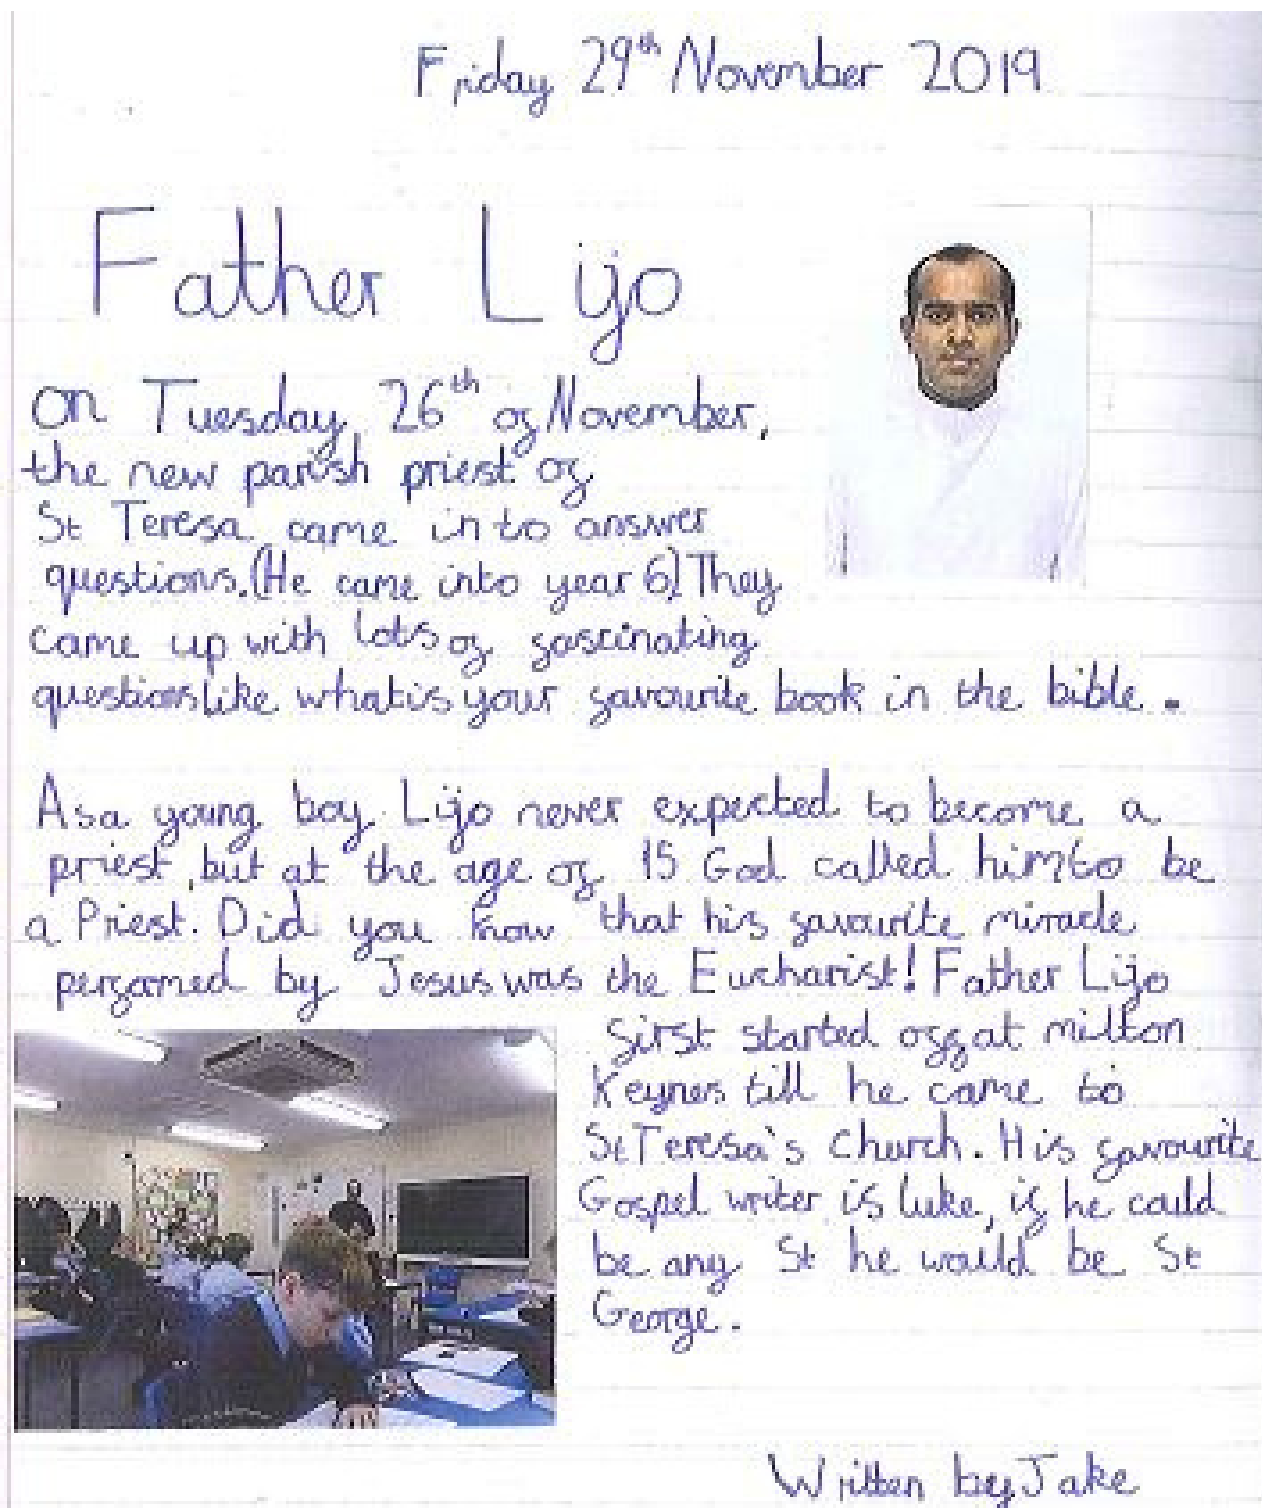 Friday 29th November 2019
Father Lijo
On Tuesday 26th of November,
the new parish priest of
St Teresa came in to answer
questions. (He came into year 6) They
came up with lots of fascinating
questions like what is your favourite book in the bible.
As a young boy Lijo never expected to become a
priest, but at the age of 15 God called him to be
a Priest. Did you know that his favourite miracle
perfomed by Jesus was the Eucharist! Father Lijo
first started off at milton
Keynes till he came to
St Teresa's Church. His favourite
Gospel writer is luke, if he could
be any St he would be St
George.
Written by Jake